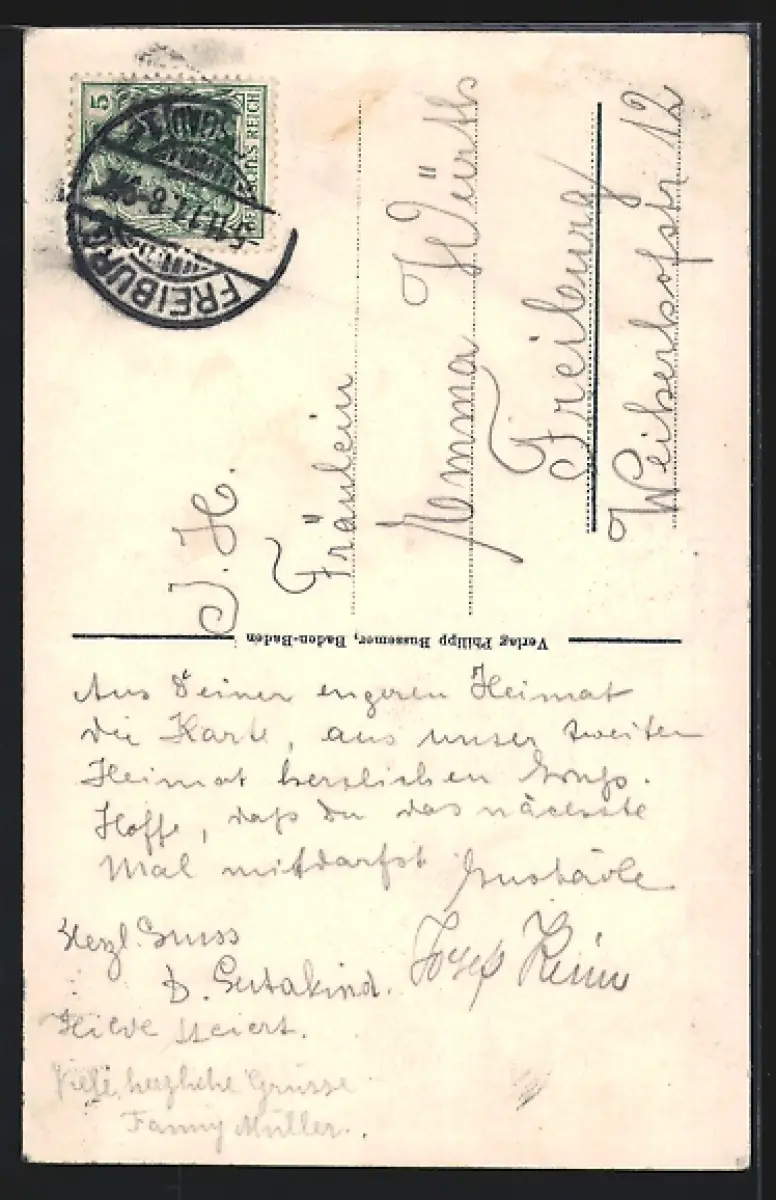 5
DEUTSCHES REICH
FREIBURG
-5.11.11.8-9N.
J. H.
Fräulein
Emma Würth
Freiburg
Weiherhofstr 12
Verlag Philipp Bussemer, Baden-Baden
Aus Deiner engeren Heimat
die Karte, aus unser zweiten
Heimat herzlichen Gruß.
Hoffe, daß Du das nächste
Mal mitdarfst Gustävle.
Herzl. Gruss
Josef
Hilde
Viele herzliche Grüsse
Fanny Müller.